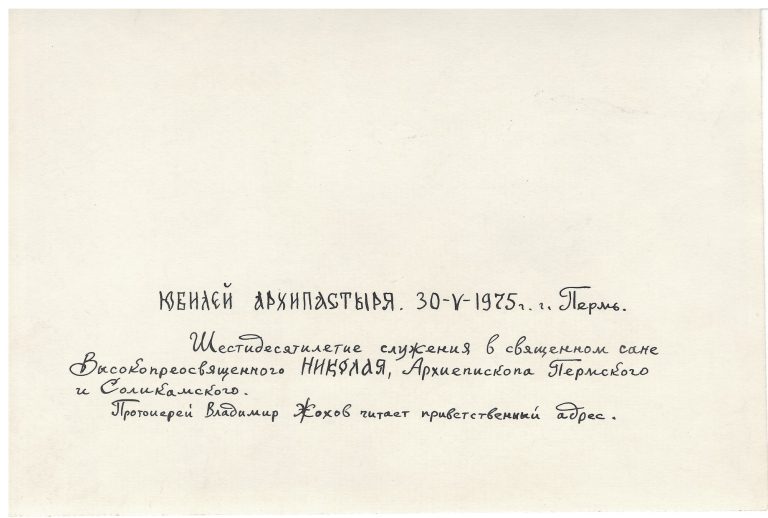 ЮБИЛЕЙ АРХИПАСТЫРЯ. 30-V-1975г. г. Пермь.
Шестидесятилетие служения в священном сане
Высокопреосвященного НИКОЛАЯ, Архиепископа Пермского
и Соликамского.
Протоиерей Владимир Жохов читает приветственный адрес.